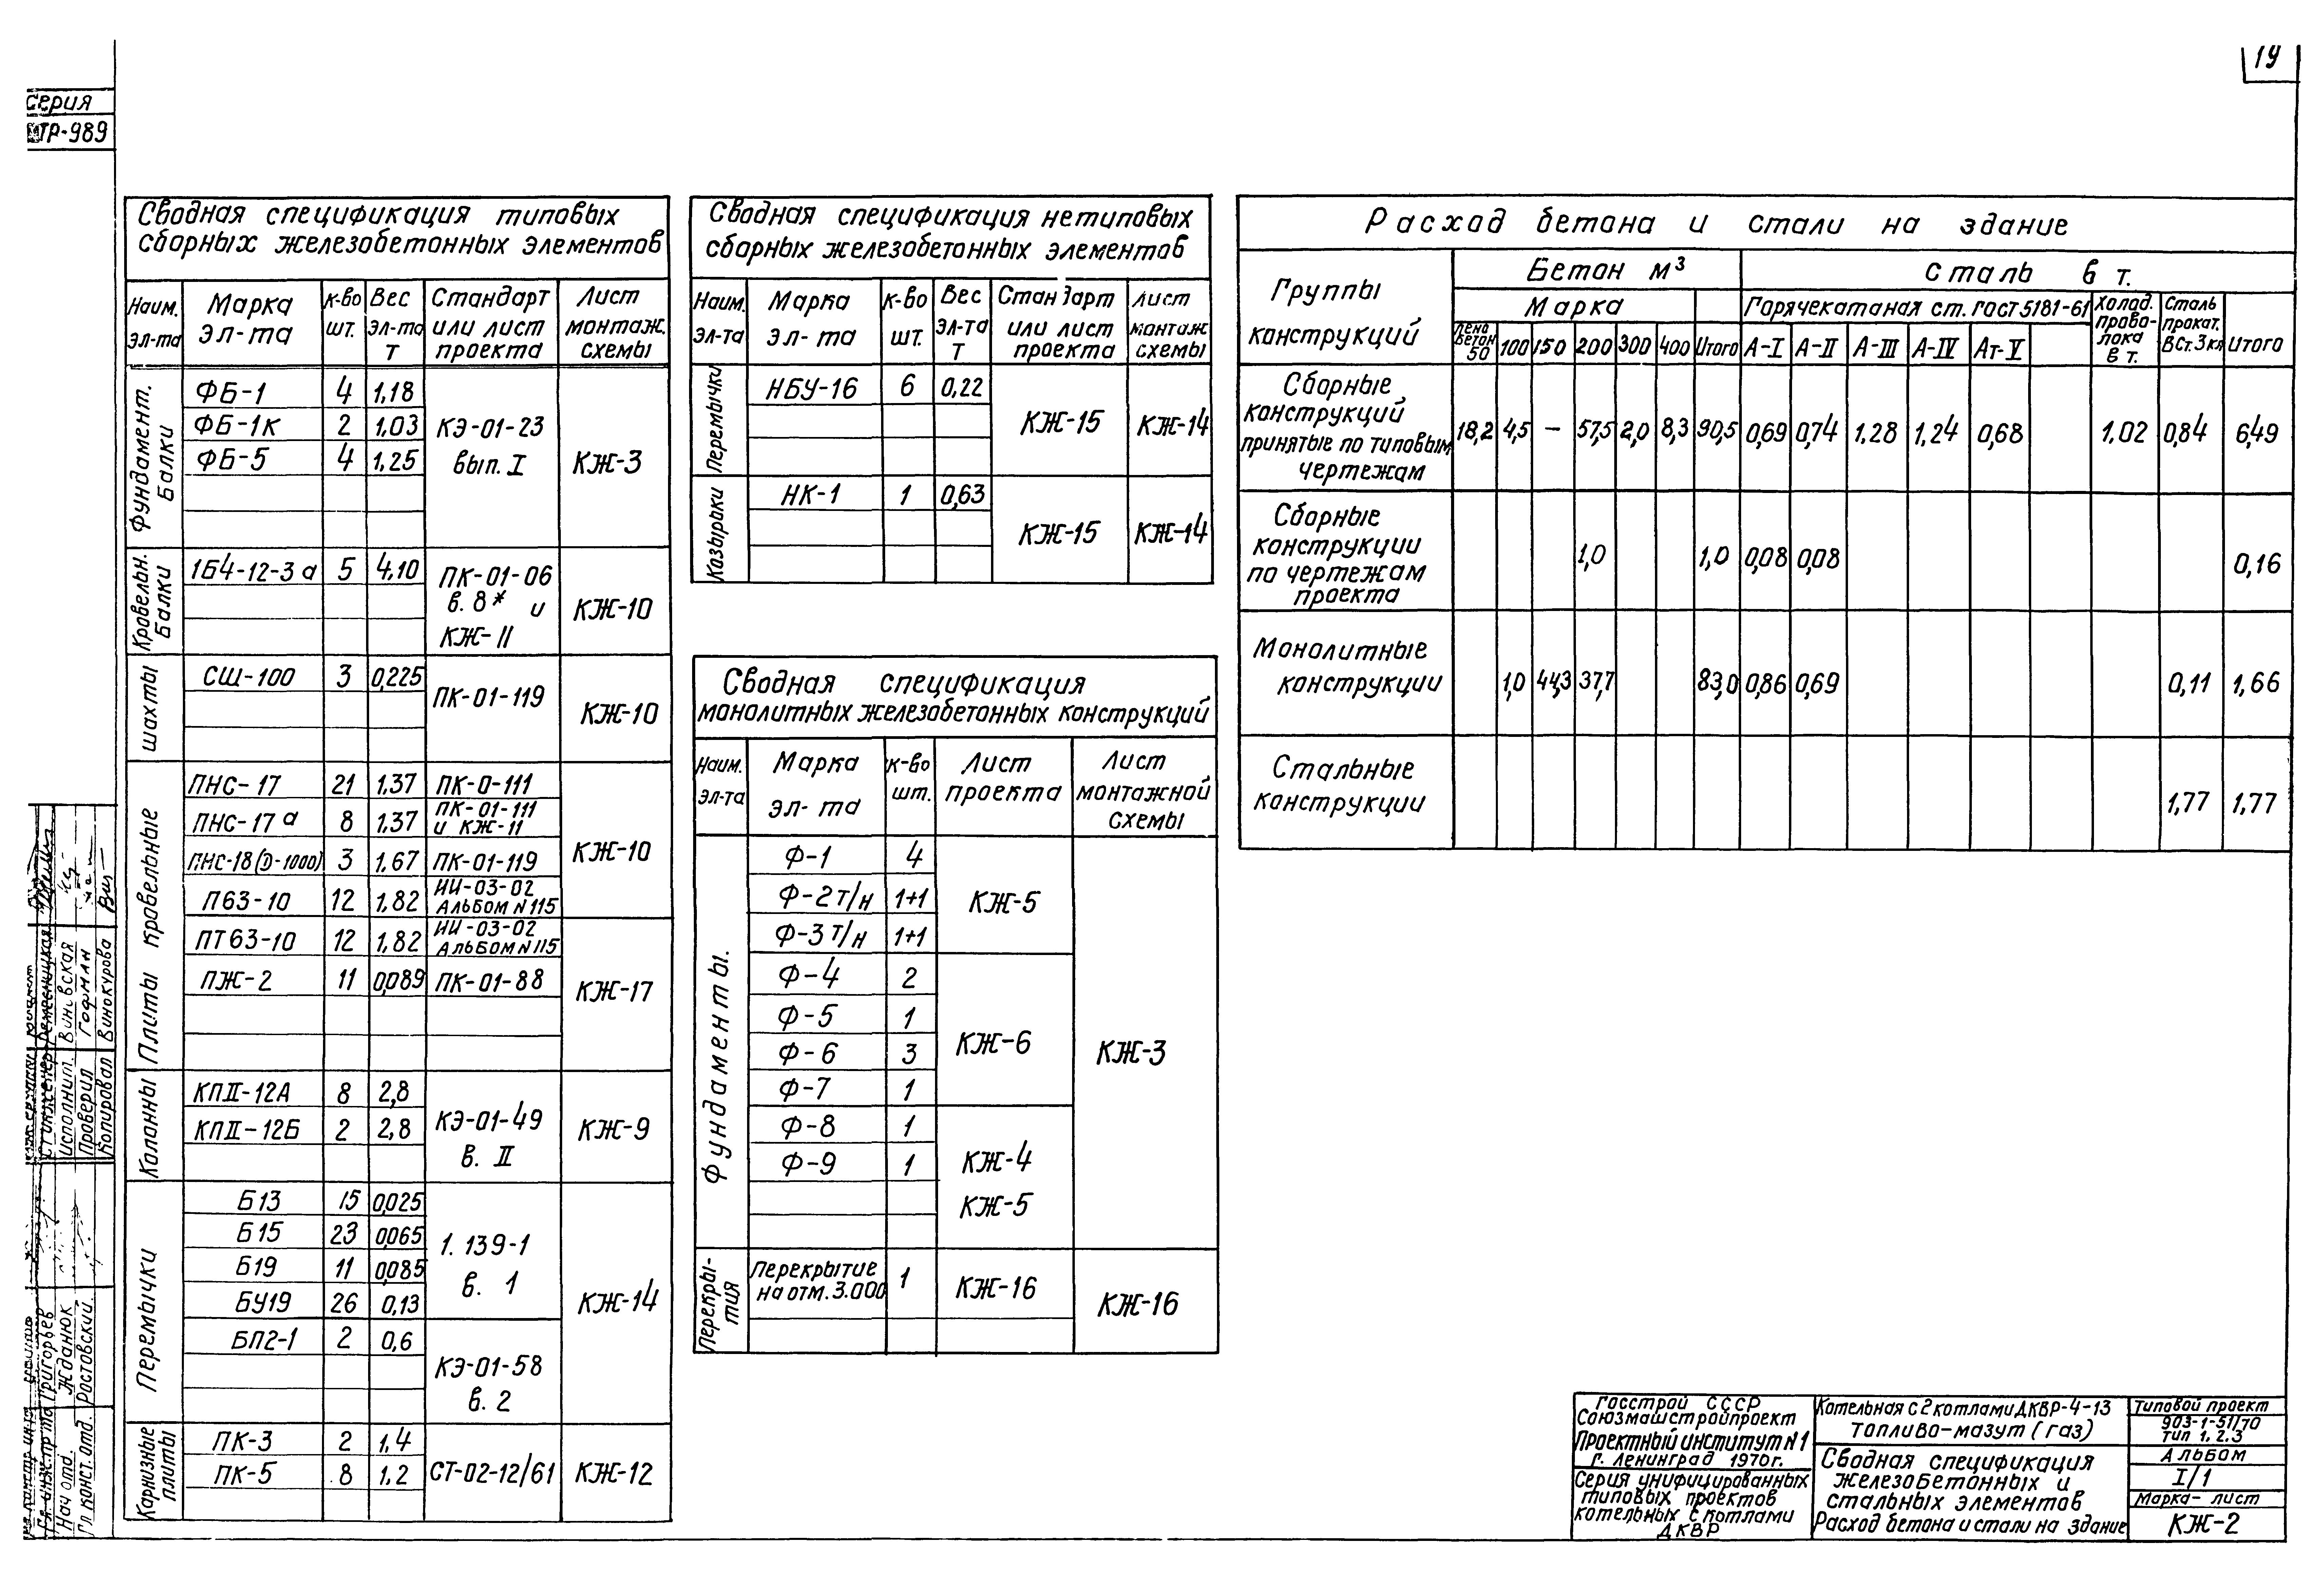 19
Серия
ТР-989
Сводная спецификация типовых
сборных железобетонных элементов
Наим. эл-та | Марка эл-та | к-во шт. | Вес эл-та т | Стандарт или лист проекта | Лист монтаж. схемы
Фундамент. балки
ФБ-1 4 1,18
ФБ-1к 2 1,03
ФБ-5 4 1,25
КЭ-01-23
вып. I
КЖ-3
Кровельн. балки
1Б4-12-3а 5 4,10
ПК-01-06
в. 8* и
КЖ-11
КЖ-10
шахты
СШ-100 3 0,225
ПК-01-119
КЖ-10
Плиты кровельные
ПНС-17 21 1.37 ПК-0-111
ПНС-17а 8 1.37 ПК-01-111 и КЖ-11
ПНС-18(D-1000) 3 1.67 ПК-01-119
П63-10 12 1,82 ИИ-03-02 Альбом N115
КЖ-10
ПТ63-10 12 1,82 ИИ-03-02 Альбом N115
ПЖ-2 11 0,089 ПК-01-88
КЖ-17
Колонны
КПII-12А 8 2,8
КПII-12Б 2 2,8
КЭ-01-49
в. II
КЖ-9
Перемычки
Б13 15 0,025
Б15 23 0,065
Б19 11 0,085
БУ19 26 0,13
1.139-1
в. 1
БП2-1 2 0,6
КЭ-01-58
в. 2
КЖ-14
Карнизные плиты
ПК-3 2 1,4
ПК-5 8 1.2
СТ-02-12/61
КЖ-12
Сводная спецификация нетиповых
сборных железобетонных элементов
Наим. эл-та | Марка эл-та | к-во шт. | Вес эл-та т | Стандарт или лист проекта | Лист монтаж схемы
Перемычки
НБУ-16 6 0,22
КЖ-15
КЖ-14
Козырьки
НК-1 1 0,63
КЖ-15
КЖ-14
Сводная спецификация
монолитных железобетонных конструкций
Наим. эл-та | Марка эл-та | к-во шт. | Лист проекта | Лист монтажной схемы
Фундаменты.
Ф-1 4
Ф-2т/н 1+1
Ф-3т/н 1+1
КЖ-5
Ф-4 2
Ф-5 1
Ф-6 3
Ф-7 1
КЖ-6
Ф-8 1
Ф-9 1
КЖ-4
КЖ-5
КЖ-3
Перекры-
тия
Перекрытие
на отм. 3.000
1
КЖ-16
КЖ-16
Расход бетона и стали на здание
Группы конструкций
Бетон м³
Сталь в т.
Марка
Горячекатаная ст. ГОСТ 5181-61
пено бетон 50 | 100 | 150 | 200 | 300 | 400 | Итого | А-I | А-II | А-III | А-IV | Ат-V | Холод. прово-лока в т. | Сталь прокат. В Ст.3кп | Итого
Сборные
конструкций
принятые по типовым
чертежам
18,2 4,5 — 57,5 2,0 8,3 90,5 0,69 0,74 1,28 1,24 0,68 1,02 0,84 6,49
Сборные
конструкции
по чертежам
проекта
1,0 1,0 0,08 0,08 0,16
Монолитные
конструкции
1,0 44,3 37,7 83,0 0,86 0,69 0,11 1,66
Стальные
конструкции
1,77 1,77
Госстрой СССР
Союзмашстройпроект
Проектный институт N1
г. Ленинград 1970г.
Серия унифицированных
типовых проектов
котельных с котлами
ДКВР
Котельная с 2 котлами ДКВР-4-13
Топливо-мазут (газ)
Сводная спецификация
железобетонных и
стальных элементов
Расход бетона и стали на здание
Типовой проект
903-1-51/70
тип 1.2.3
Альбом
I/1
Марка-лист
КЖ-2
Ст инженер
Исполнит. Виньвская
Проверил Гофман
Копировал Винокурова
Гл. инж. пр-та Григорьев
Нач отд. Жданюк
Гл. конст. отд. Ростовский